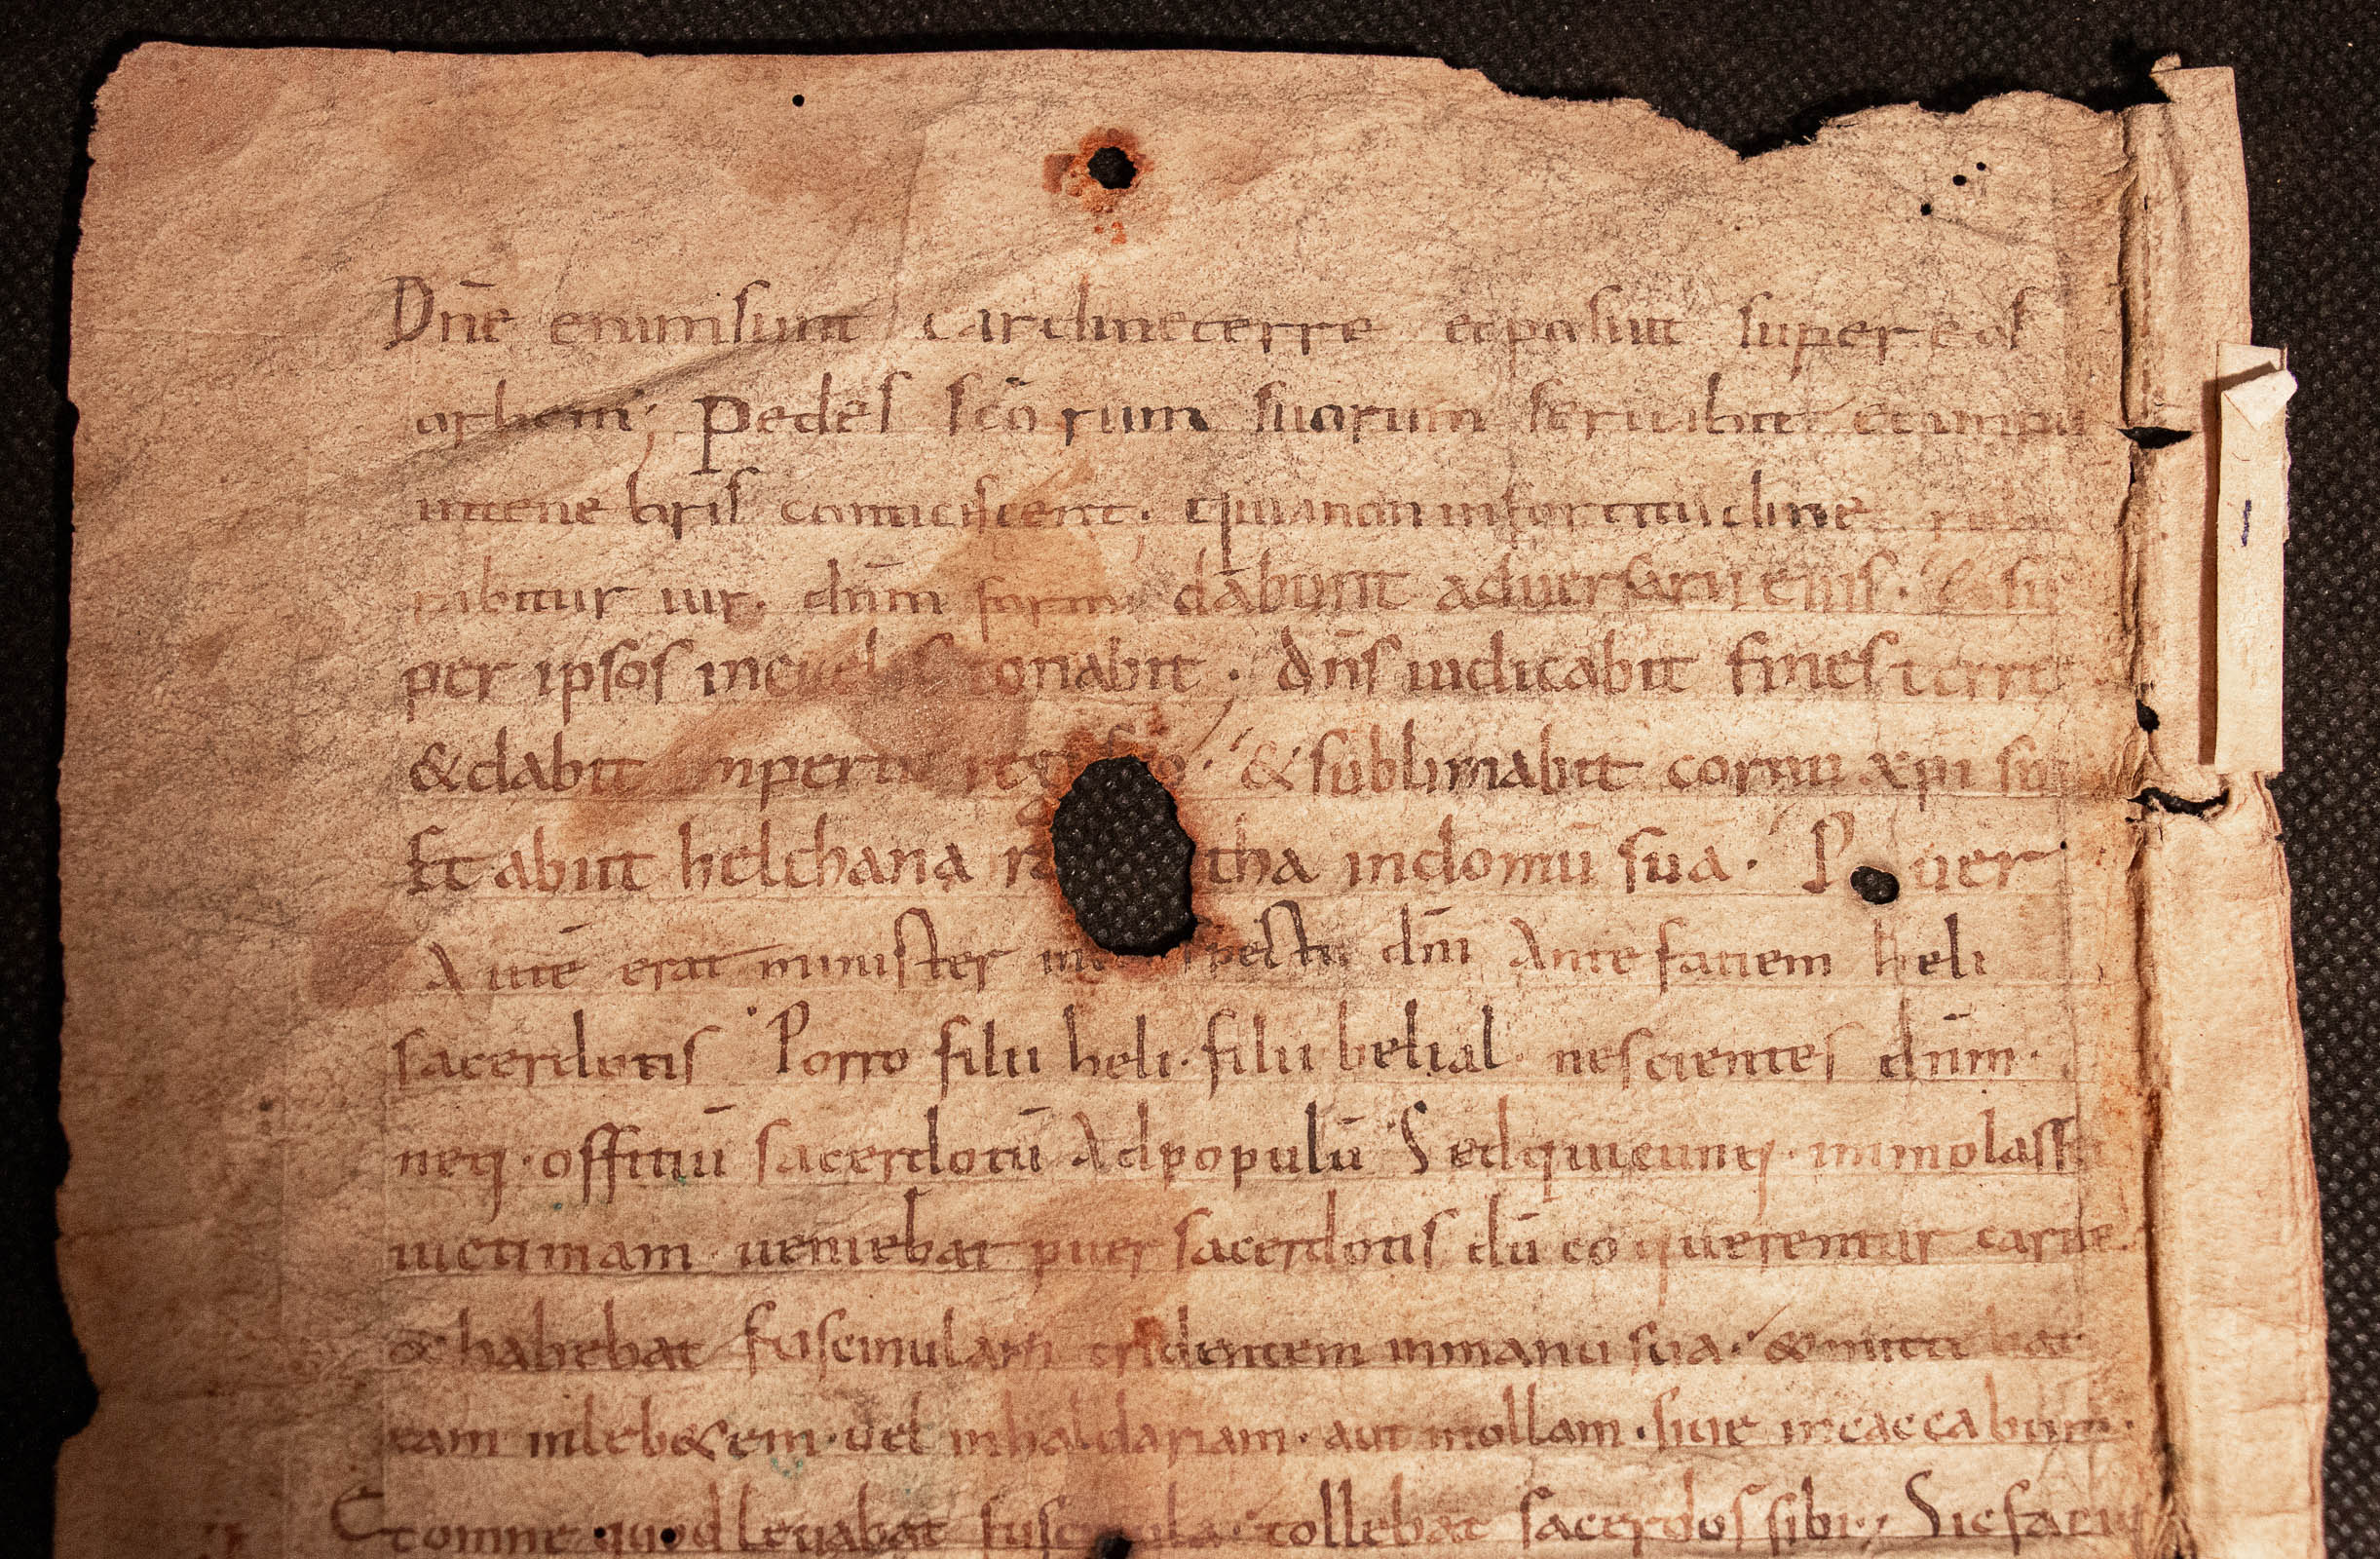 Dn̄e enim sunt cardine terre et posuit super eos
orbem; Pedes sc̄orum suorum servabit et impii
in tenebris conticiscent; quia non in fortitudine
rabitur vir. dn̄m dabunt adversarii eius.
per ipsos in celos tonabit. dn̄s iudicabit fines terre
& dabit inperiu & sublimabit cornu xp̄i sui
Et abiit helchana tha in domū suā. P uer
Autē erat minister dn̄i Ante fatiem heli
sacerdotis Porro filii heli. filii belial. nescientes dn̄m.
neq; offitiū sacerdotū Ad populū Sed quicunq; immolasset
victimam. veniebat puer sacerdotis dū coquerentur carne
& habebat fuscinulam tridentem in manu sua. & mittebat
eam in leb&em. vel in haldariam. aut in ollam. sive in caccabum.
Et omne quod levabat tollebat sacerdos sibi; Sic
1